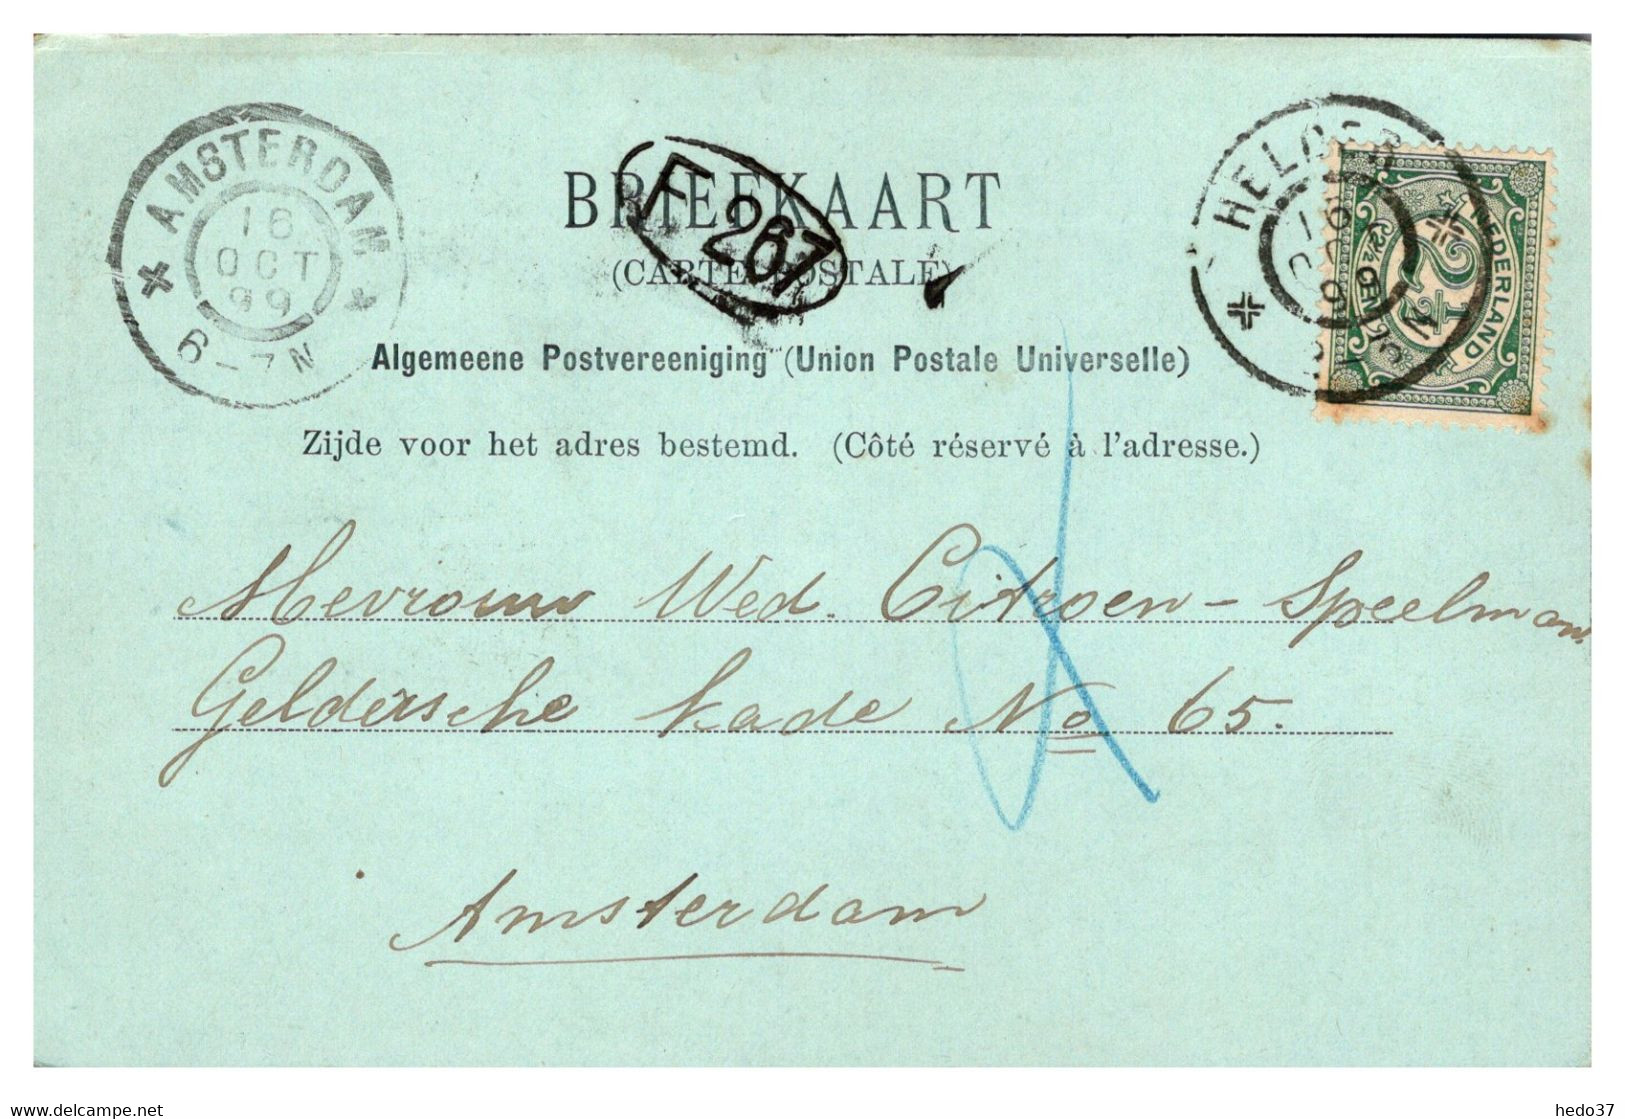 AMSTERDAM
16
OCT
99
6-7N
F 267
HELDER
16
OCT
99
NEDERLAND
2½
2½ CENT
BRIEFKAART
(CARTE POSTALE)
Algemeene Postvereeniging (Union Postale Universelle)
Zijde voor het adres bestemd. (Côté réservé à l'adresse.)
Mevrouw Wed. Citroen - Speelman.
Geldersche Kade No 65.
Amsterdam
https://www.delcampe.net
hedo37